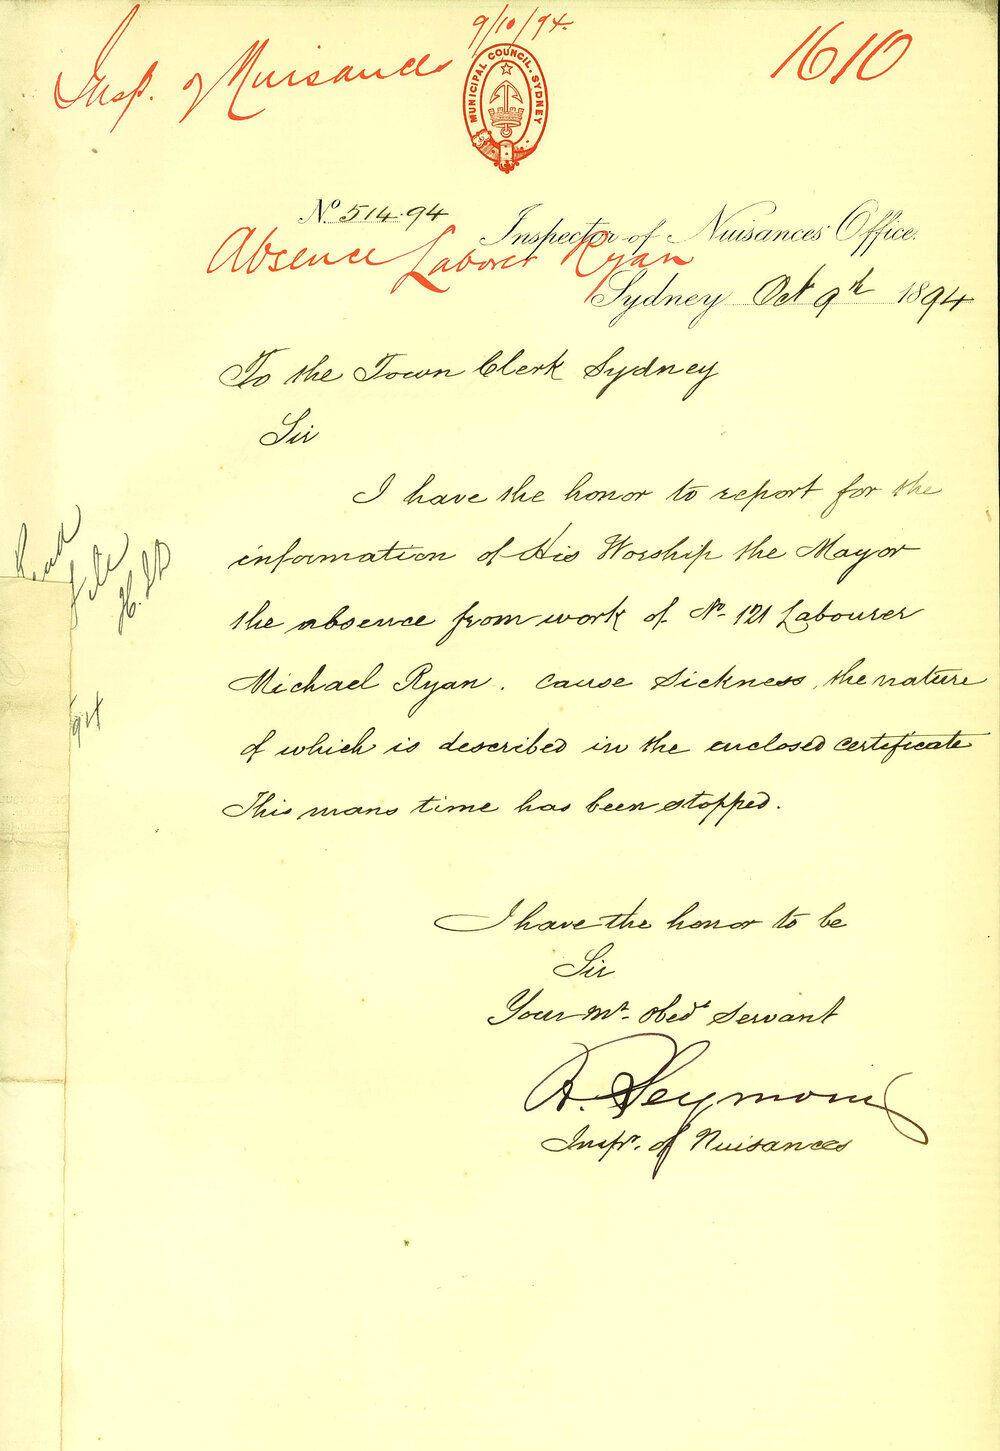 9/10/94.
Insp. of Nuisances
1610
MUNICIPAL COUNCIL. SYDNEY
No. 514.94
Inspector of Nuisances Office.
Absence Laborer Ryan
Sydney Oct 9th 1894
To the Town Clerk Sydney
Sir
I have the honor to report for the
information of His Worship the Mayor
the absence from work of No. 121 Labourer
Michael Ryan. cause Sickness, the nature
of which is described in the enclosed certificate
This mans time has been stopped.
Read
file
94
I have the honor to be
Sir
Your Mt. obedt Servant
A. Seymour
Inspr. of Nuisances